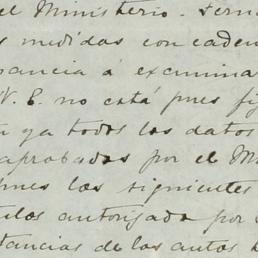 el Ministerio. Fern
s medidas con caden
pancia á examina
V. E. no está pues fij
ya todos los datos
aprobadas por el M
mes los siguientes
ulos autorizada por
tancias de los autos